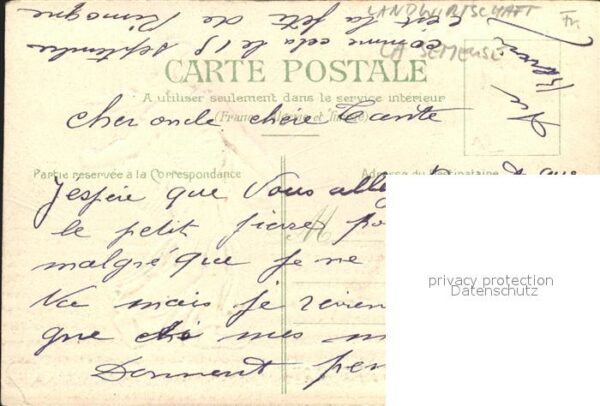 LANDWIRTSCHAFT
LA SEMEUSE
Fr.
c'est la fête de Rimogne
comme cela le 18 septembre
CARTE POSTALE
A utiliser seulement dans le service intérieur
(France, Algérie et Tunisie)
Cher oncle chère Tante
Partie réservée à la Correspondance
Adresse du Destinataire
J'espère que Vous alle
le petit pierre po
malgré que je ne
Va mais je revien
que mes m
Donnent pen
16
privacy protection
Datenschutz